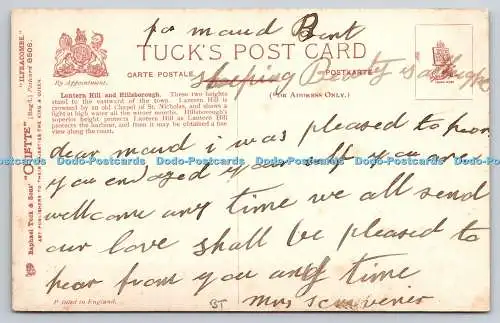 for maud Bent
TUCK'S POST CARD
CARTE POSTALE
POSTKARTE
By Appointment.
(FOR ADDRESS ONLY.)
Lantern Hill and Hillsborough. These two heights
stand to the eastward of the town. Lantern Hill is
crowned by an old Chapel of St. Nicholas, and shows a
light at high water all the winter months. Hillsborough of
superior height, protects Lantern Hill as Lantern Hill
protects the harbour, and from it may be obtained a fine
view along the coast.
"ILFRACOMBE."
Raphael Tuck & Sons' "OILETTE" (Regd.) Postcard 8508.
ART PUBLISHERS TO THEIR MAJESTIES THE KING & QUEEN
dear maud i was pleased to
you enjoyed your self you are
wellcome any time we all send
our love shall be pleased to
hear from you any time
mrs
BT
Printed in England.
Dodo-Postcards Dodo-Postcards Dodo-Postcards Dodo-Postcards Dodo-Postcards